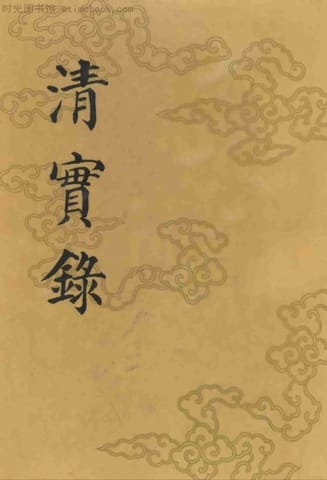 时光图书馆 - etimebook.com
清實錄